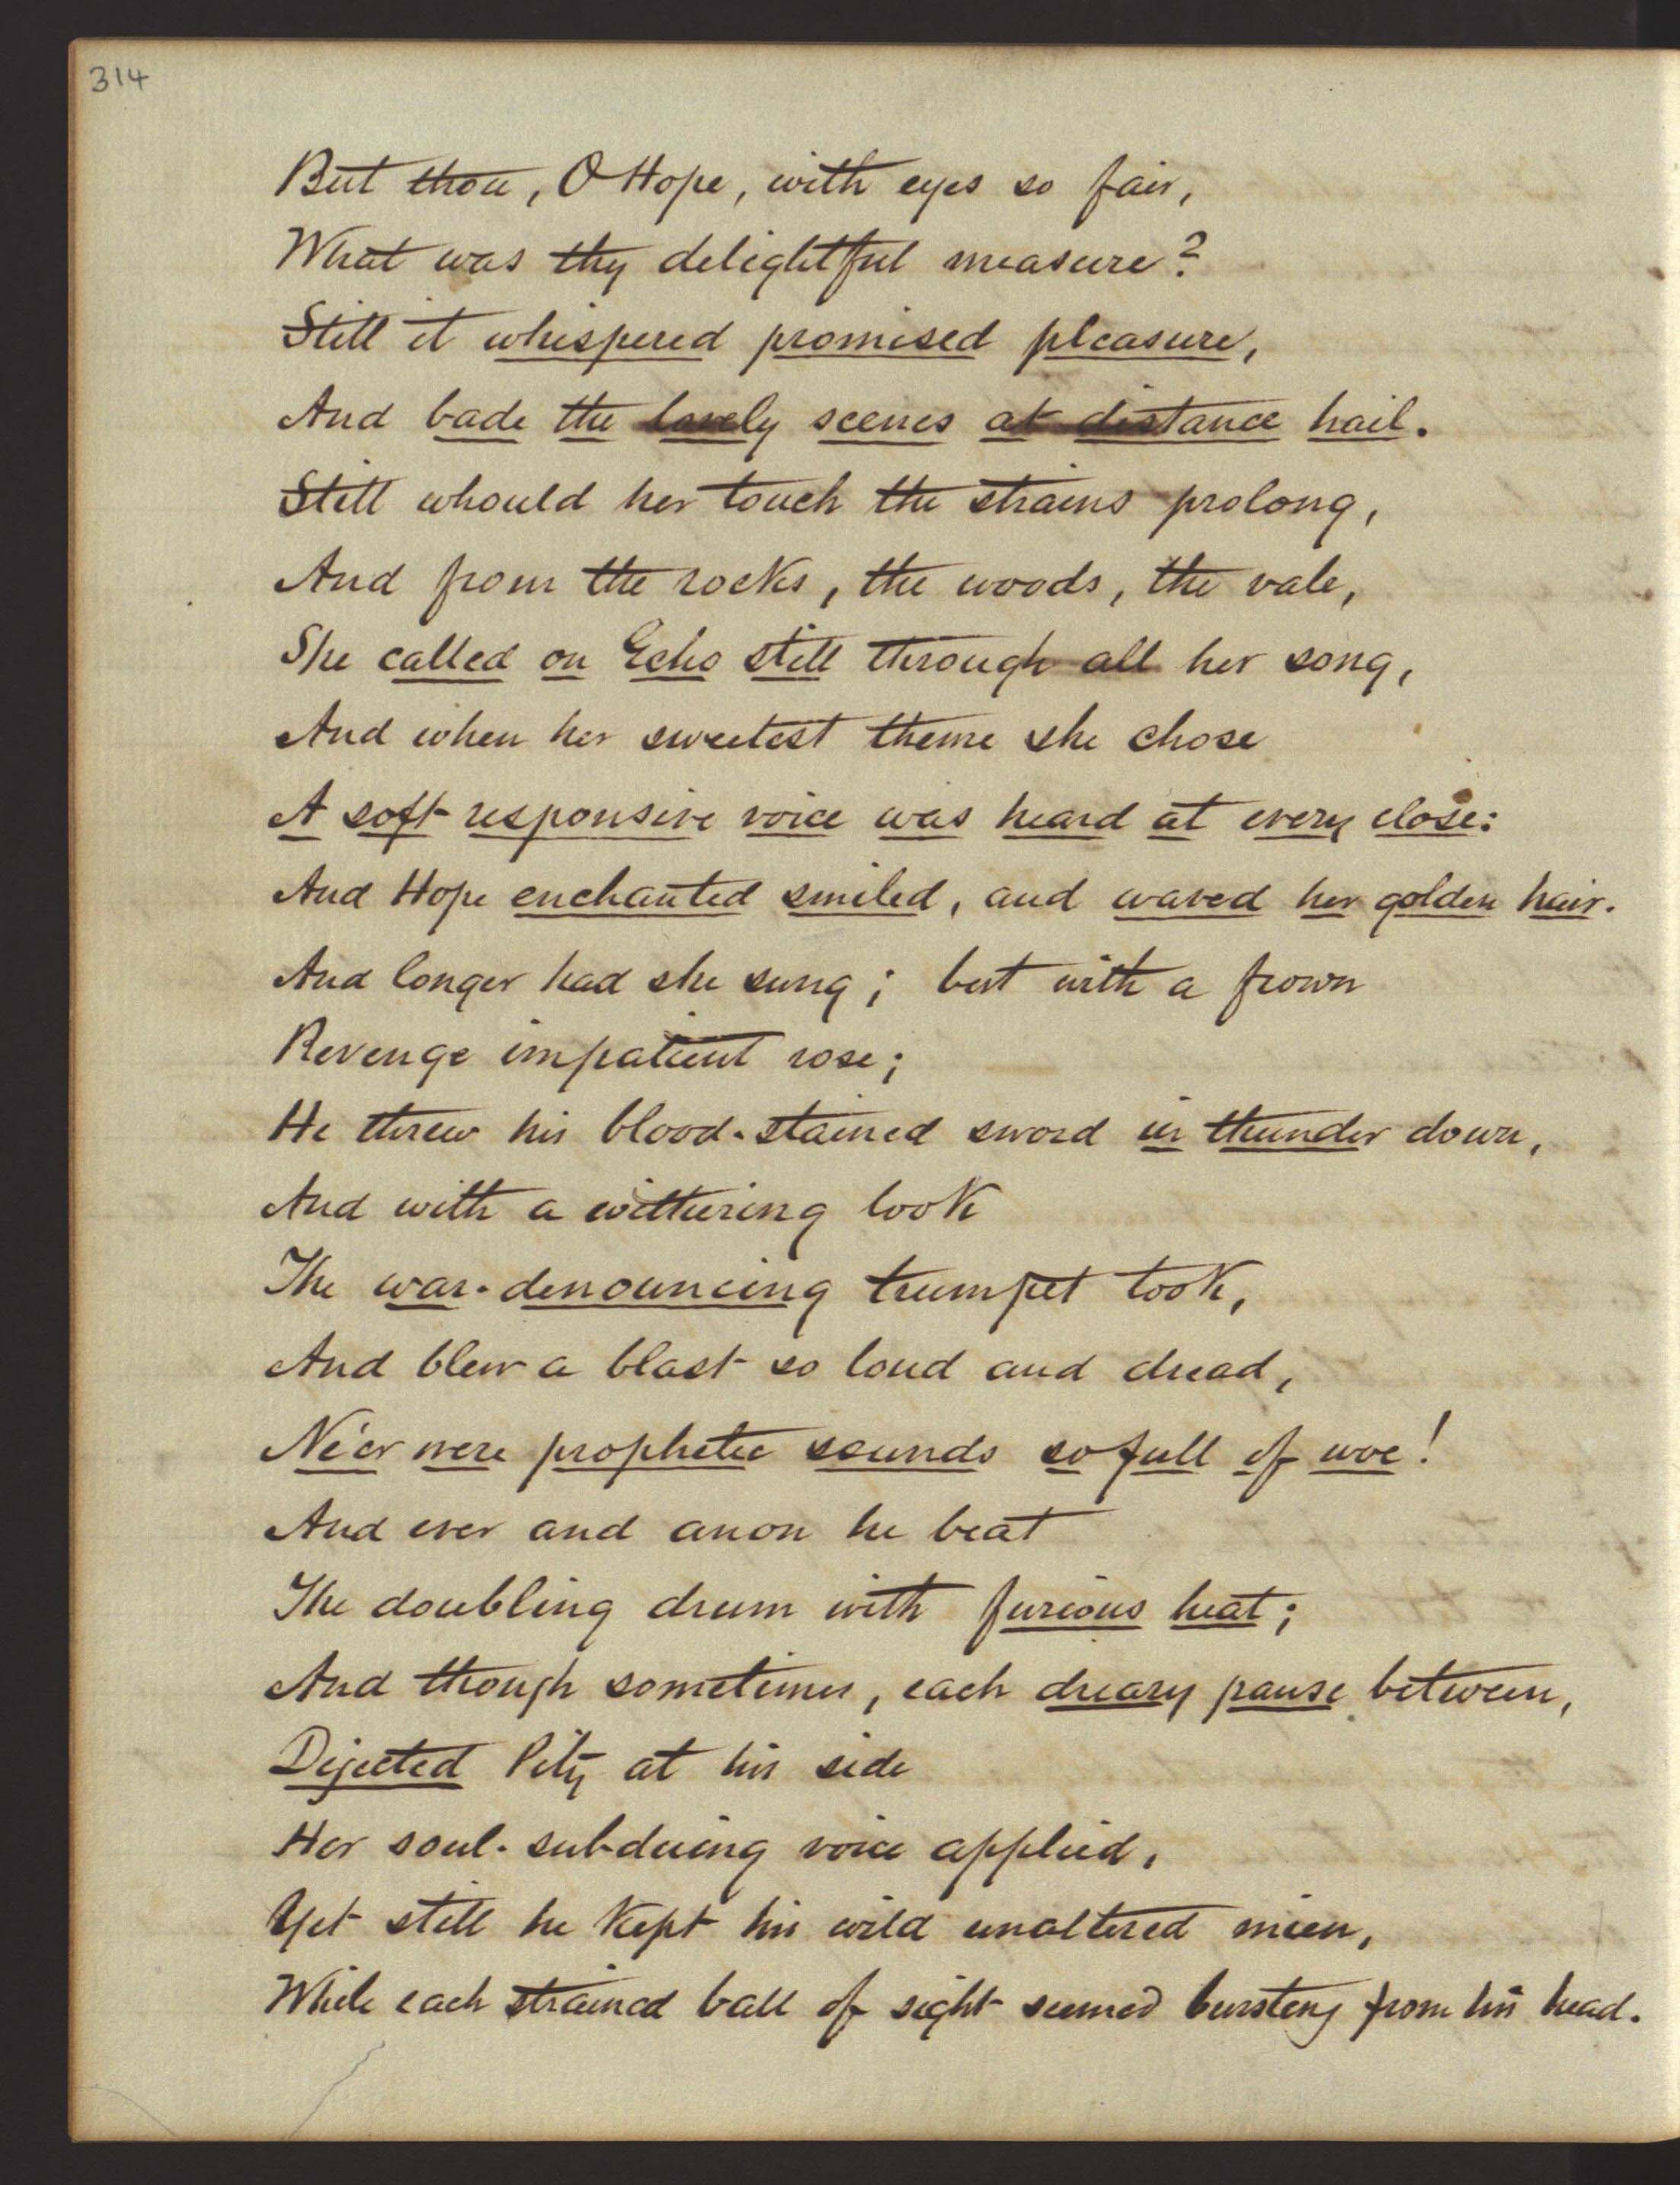 314
But thou, O Hope, with eyes so fair,
What was thy delightful measure?
Still it whispered promised pleasure,
And bade the lovely scenes at distance hail.
Still whould her touch the strains prolong,
And from the rocks, the woods, the vale,
She called on Echo still through all her song,
And when her sweetest theme she chose
A soft responsive voice was heard at every close:
And Hope enchanted smiled, and waved her golden hair.
And longer had she sung; but with a frown
Revenge impatient rose;
He threw his blood-stained sword in thunder down,
And with a withering look
The war-denouncing trumpet took,
And blew a blast so loud and dread,
Ne'er were prophetic sounds so full of woe!
And ever and anon he beat
The doubling drum with furious heat;
And though sometimes, each dreary pause between,
Dejected Pity at his side
Her soul-subduing voice applied,
Yet still he kept his wild unaltered mien,
While each strained ball of sight seemed bursting from his head.